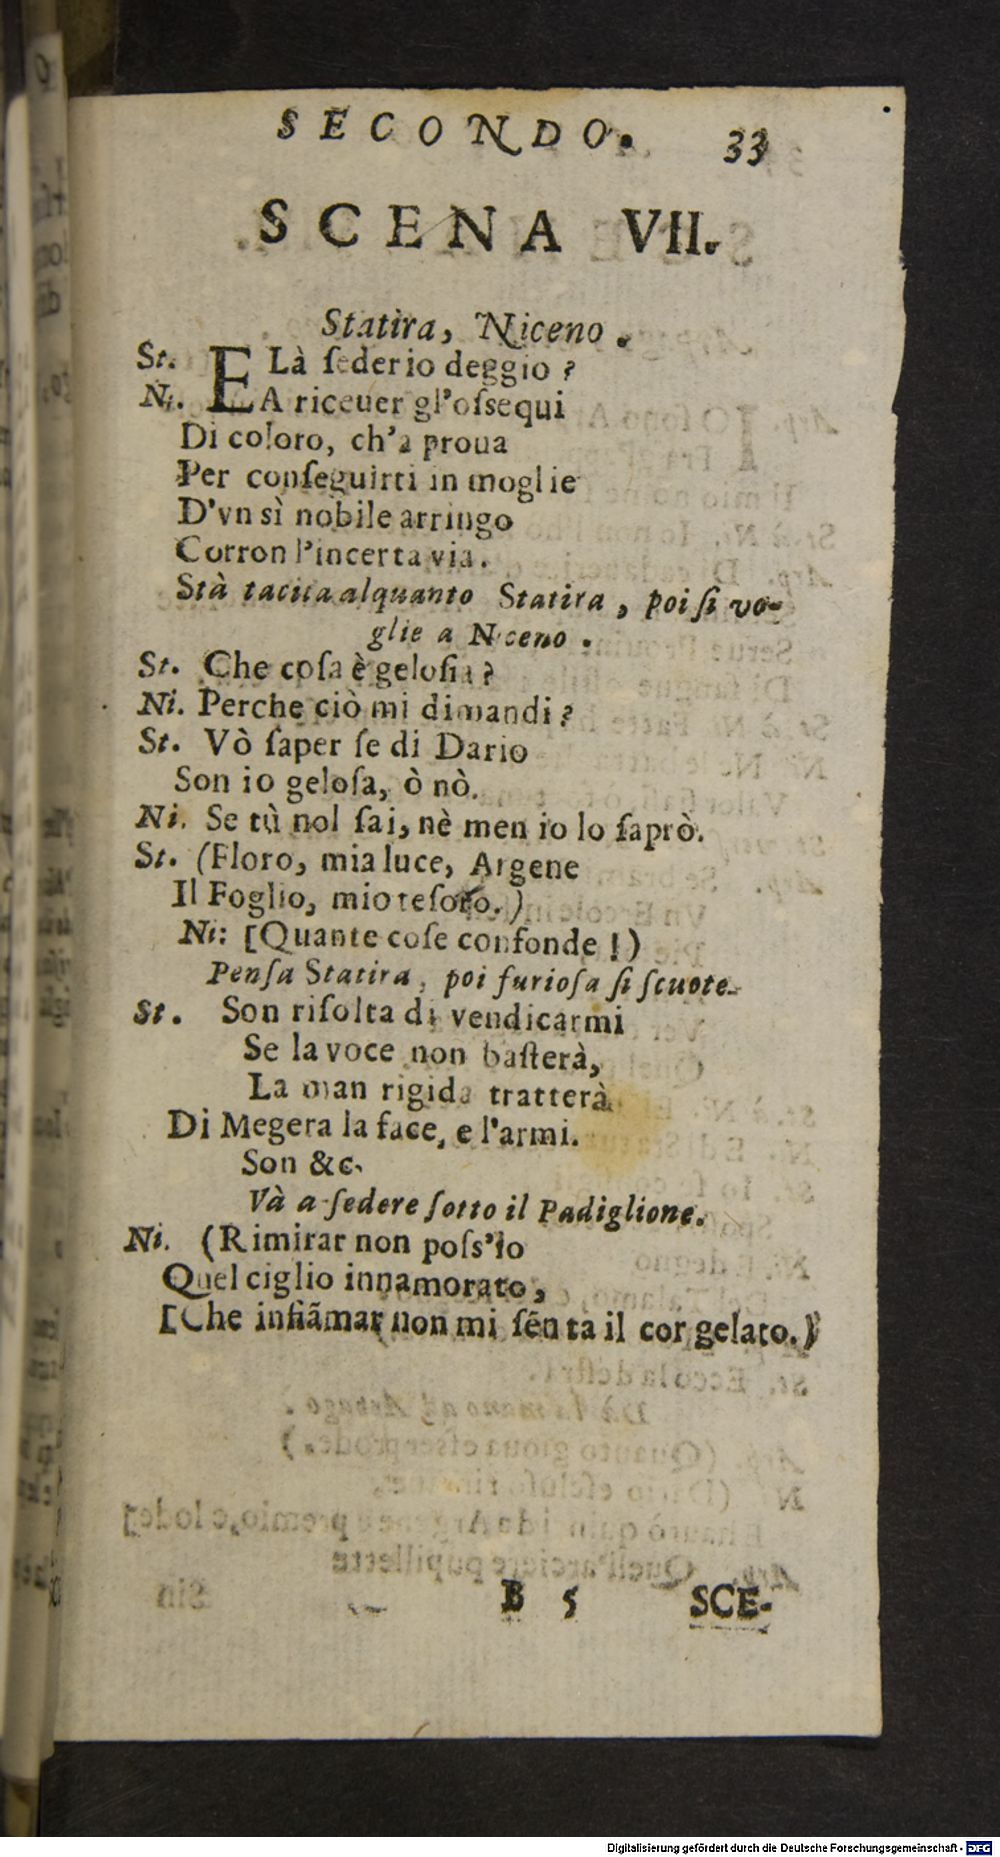 SECONDO. 33
SCENA VII.
Statira, Niceno.
St. ELà ſeder io deggio?
Ni. A riceuer gl'oſsequi
Di coloro, ch'a proua
Per conſeguirti in moglie
D'vn sì nobile arringo
Corron l'incerta via.
Stà tacita alquanto Statira, poi ſi vo-
glie a Niceno.
St. Che coſa è geloſia?
Ni. Perche ciò mi dimandi?
St. Vò ſaper ſe di Dario
Son io geloſa, ò nò.
Ni. Se tù nol ſai, nè men io lo ſaprò.
St. (Floro, mia luce, Argene
Il Foglio, mio teſoro.)
Ni: [Quante coſe confonde!)
Penſa Statira, poi furioſa ſi ſcuote.
St. Son riſolta di vendicarmi
Se la voce non baſterà,
La man rigida tratterà
Di Megera la face, e l'armi.
Son &c.
Và a ſedere ſotto il Padiglione.
Ni. (Rimirar non poſs'io
Quel ciglio innamorato,
[Che infiãmar non mi ſẽnta il cor gelato.)
B 5 SCE-
Digitalisierung gefördert durch die Deutsche Forschungsgemeinschaft - DFG